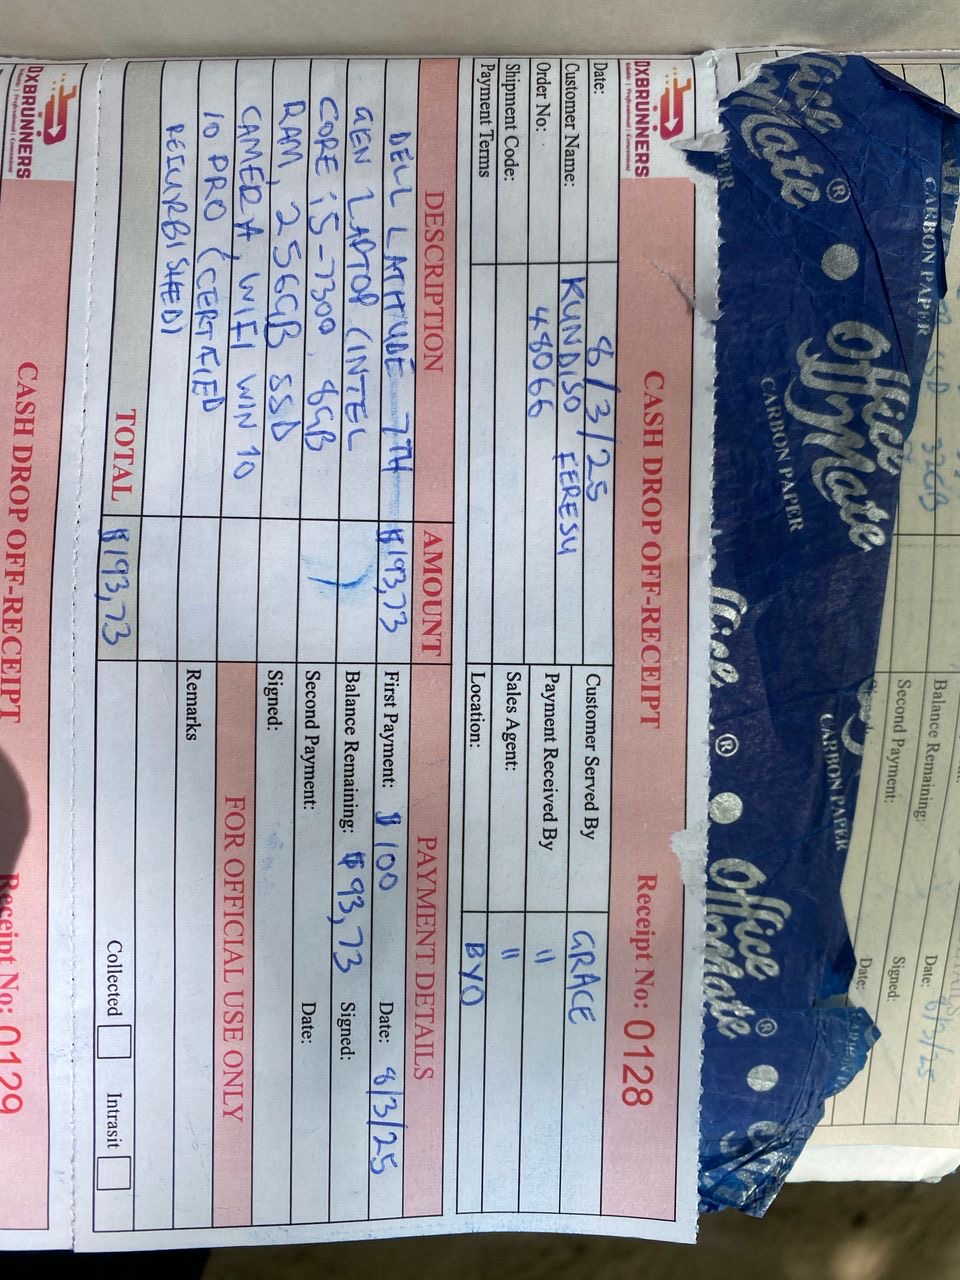 DXBRUNNERS
CASH DROP OFF-RECEIPT
Receipt No: 0128
Date: 8/3/25
Customer Served By GRACE
Customer Name: KUNDISO FERESU
Payment Received By "
Order No: 48066
Sales Agent: "
Shipment Code:
Location: BYO
Payment Terms
DESCRIPTION AMOUNT PAYMENT DETAILS
DELL LATITUDE 7TH $193,73 First Payment: $100 Date: 8/3/25
GEN LAPTOP (INTEL Balance Remaining: $93,73 Signed:
CORE i5-7300, 8GB Second Payment: Date:
RAM, 256GB SSD Signed:
CAMERA, WIFI WIN 10 FOR OFFICIAL USE ONLY
10 PRO (CERTIFIED Remarks
REFURBISHED)
TOTAL $193,73 Collected Intrasit
DXBRUNNERS
CASH DROP OFF-RECEIPT
Receipt No: 0129
Office Mate ®
CARBON PAPER
Office Mate
CARBON PAPER
CARBON PAPER
Office Mate ®
Balance Remaining:
Second Payment: Signed:
Date: 8/3/25
Date:
32GB
SSD